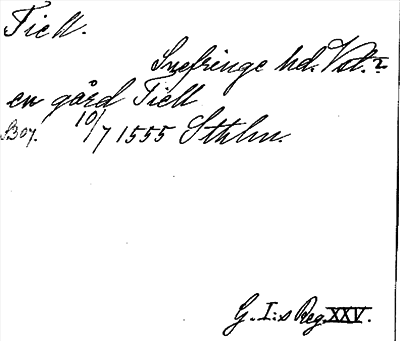 Ticll.
Snefringe hd. Vstm.
en gård Ticll
B 07. 10/7 1555 Sthlm.
G. I:s Reg. XXV.